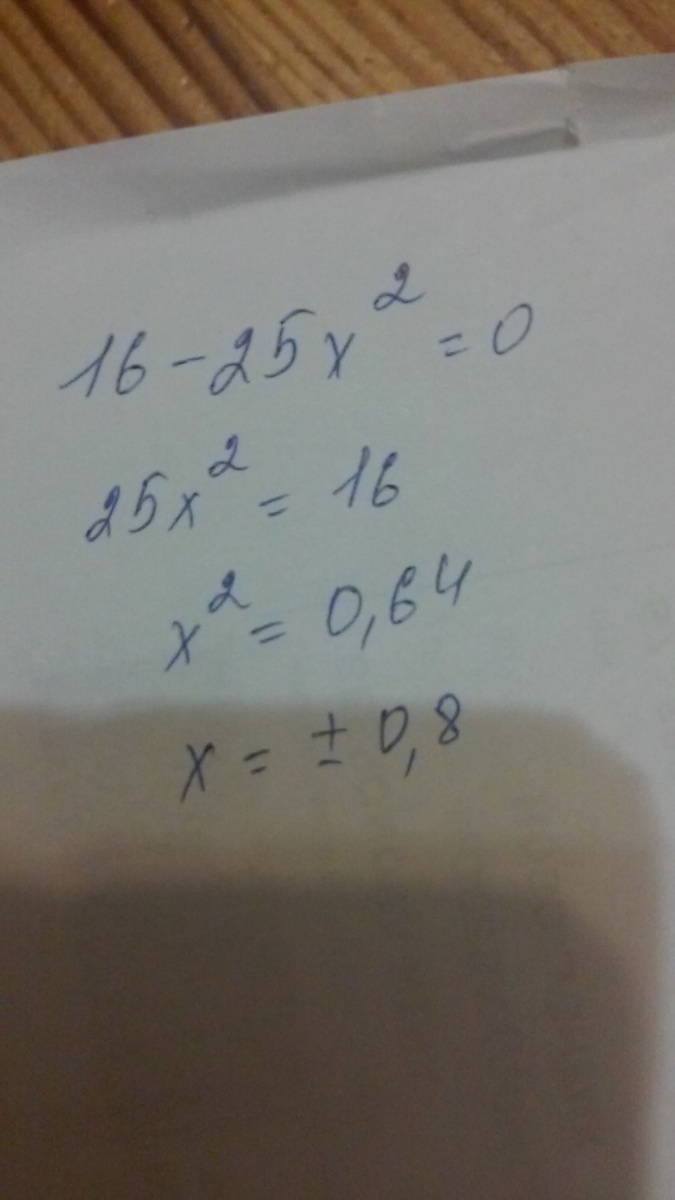 16 - 25x² = 0
25x² = 16
x² = 0,64
x = ± 0,8